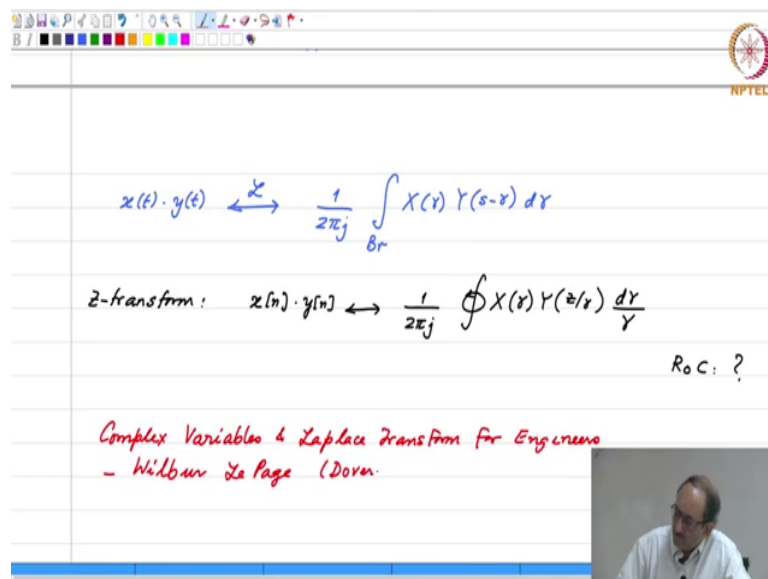 B I
NPTEL
x(t) · y(t) ⟷ℒ 1/2πj ∫_Br X(γ) Y(s-γ) dγ
Z-transform : x[n] · y[n] ⟷ 1/2πj ∮ X(γ) Y(z/γ) dγ/γ
RoC : ?
Complex Variables & Laplace Transform for Engineers
- Wilbur Le Page (Dover